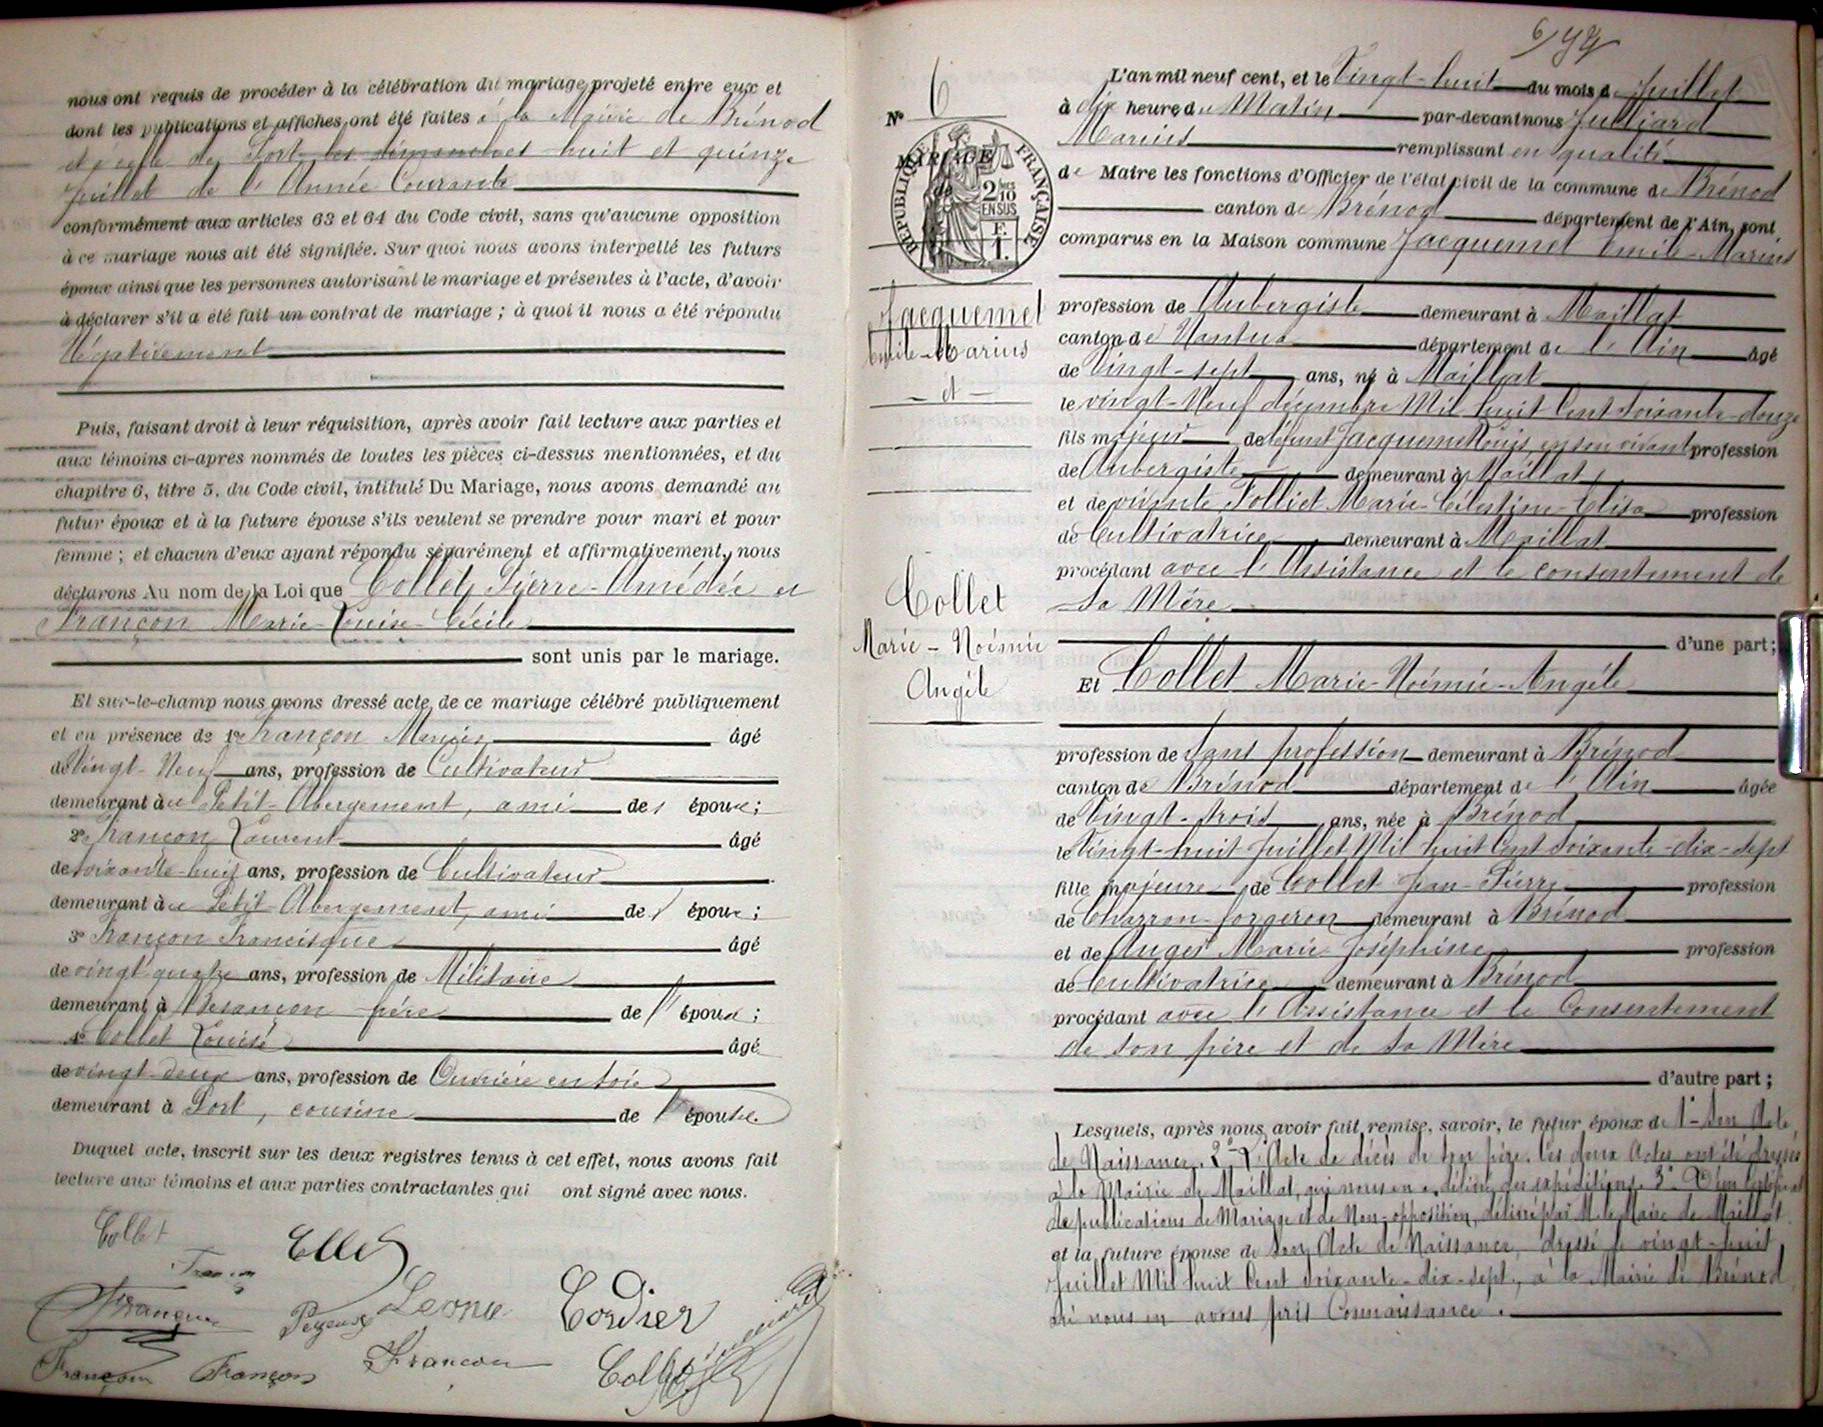 nous ont requis de procéder à la célébration du mariage projeté entre eux et
dont les publications et affiches ont été faites à la Mairie de Brénod
et à celle de Port, les dimanches huit et quinze
juillet de l'Année Courante
conformément aux articles 63 et 64 du Code civil, sans qu'aucune opposition
à ce mariage nous ait été signifiée. Sur quoi nous avons interpellé les futurs
époux ainsi que les personnes autorisant le mariage et présentes à l'acte, d'avoir
à déclarer s'il a été fait un contrat de mariage ; à quoi il nous a été répondu
Négativement
Puis, faisant droit à leur réquisition, après avoir fait lecture aux parties et
aux témoins ci-après nommés de toutes les pièces ci-dessus mentionnées, et du
chapitre 6, titre 5, du Code civil, intitulé Du Mariage, nous avons demandé au
futur époux et à la future épouse s'ils veulent se prendre pour mari et pour
femme ; et chacun d'eux ayant répondu séparément et affirmativement, nous
déclarons Au nom de la Loi que Collet Pierre-Amédée et
Françon Marie-Louise-Cécile
sont unis par le mariage.
Et sur-le-champ nous avons dressé acte de ce mariage célébré publiquement
et en présence de 1° Françon Marius âgé
de Vingt-Neuf ans, profession de Cultivateur
demeurant à Petit-Abergement, ami des époux ;
2° Françon Laurent âgé
de soixante-huit ans, profession de Cultivateur
demeurant à Petit-Abergement, ami des époux ;
3° Françon Francisque âgé
de vingt-quatre ans, profession de Militaire
demeurant à Besançon frère de l'épouse ;
4° Collet Louise âgé
de vingt-deux ans, profession de Ouvrière en soie
demeurant à Port, cousine de l'épouse.
Duquel acte, inscrit sur les deux registres tenus à cet effet, nous avons fait
lecture aux témoins et aux parties contractantes qui ont signé avec nous.
Collet
Françon
Françon Leonie Cordier
Françon Françon Francon Collet
6
N° 6
MARIAGE
RÉPUBLIQUE FRANÇAISE
2/10 EN SUS
F. 1.
Jacquemet
Emile-Marius
- et -
Collet
Marie-Noémie
Angèle
L'an mil neuf cent, et le Vingt-huit du mois de Juillet
à dix heure du Matin par-devant nous Julliard
Marius remplissant en qualité
de Maire les fonctions d'Officier de l'état civil de la commune de Brénod
canton de Brénod département de l'Ain, sont
comparus en la Maison commune Jacquemet Emile-Marius
profession de Aubergiste demeurant à Maillat
canton de Nantua département de l'Ain âgé
de Vingt-sept ans, né à Maillat
le vingt-Neuf décembre Mil huit Cent Soixante-douze
fils majeur de défunt Jacquemet Louis, en son vivant profession
de Aubergiste demeurant à Maillat
et de vivante Folliet Marie-Célestine-Elisa profession
de Cultivatrice demeurant à Maillat
procédant avec l'Assistance et le consentement de
Sa Mère
d'une part ;
Et Collet Marie-Noémie-Angèle
profession de Sans profession demeurant à Brénod
canton de Brénod département de l'Ain âgée
de Vingt-trois ans, née à Brénod
le Vingt-huit Juillet Mil huit Cent Soixante-dix-sept
fille majeure de Collet Jean-Pierre profession
de Charron-forgeron demeurant à Brénod
et de Auger Marie Joséphine profession
de Cultivatrice demeurant à Brénod
procédant avec l'Assistance et le Consentement
de son père et de Sa Mère
d'autre part ;
Lesquels, après nous avoir fait remise, savoir, le futur époux de 1° Son Acte
de Naissance. 2° L'Acte de décès de son père. Ces deux Actes ont été dressés
à la Mairie de Maillat, qui nous en a délivré des expéditions. 3° D'un Certificat
de publications de Mariage et de Non-opposition, délivré par M. le Maire de Maillat
et la future épouse de Son Acte de Naissance, dressé le vingt-huit
Juillet Mil huit Cent Soixante-dix-sept, à la Mairie de Brénod
où nous en avons pris Connaissance.